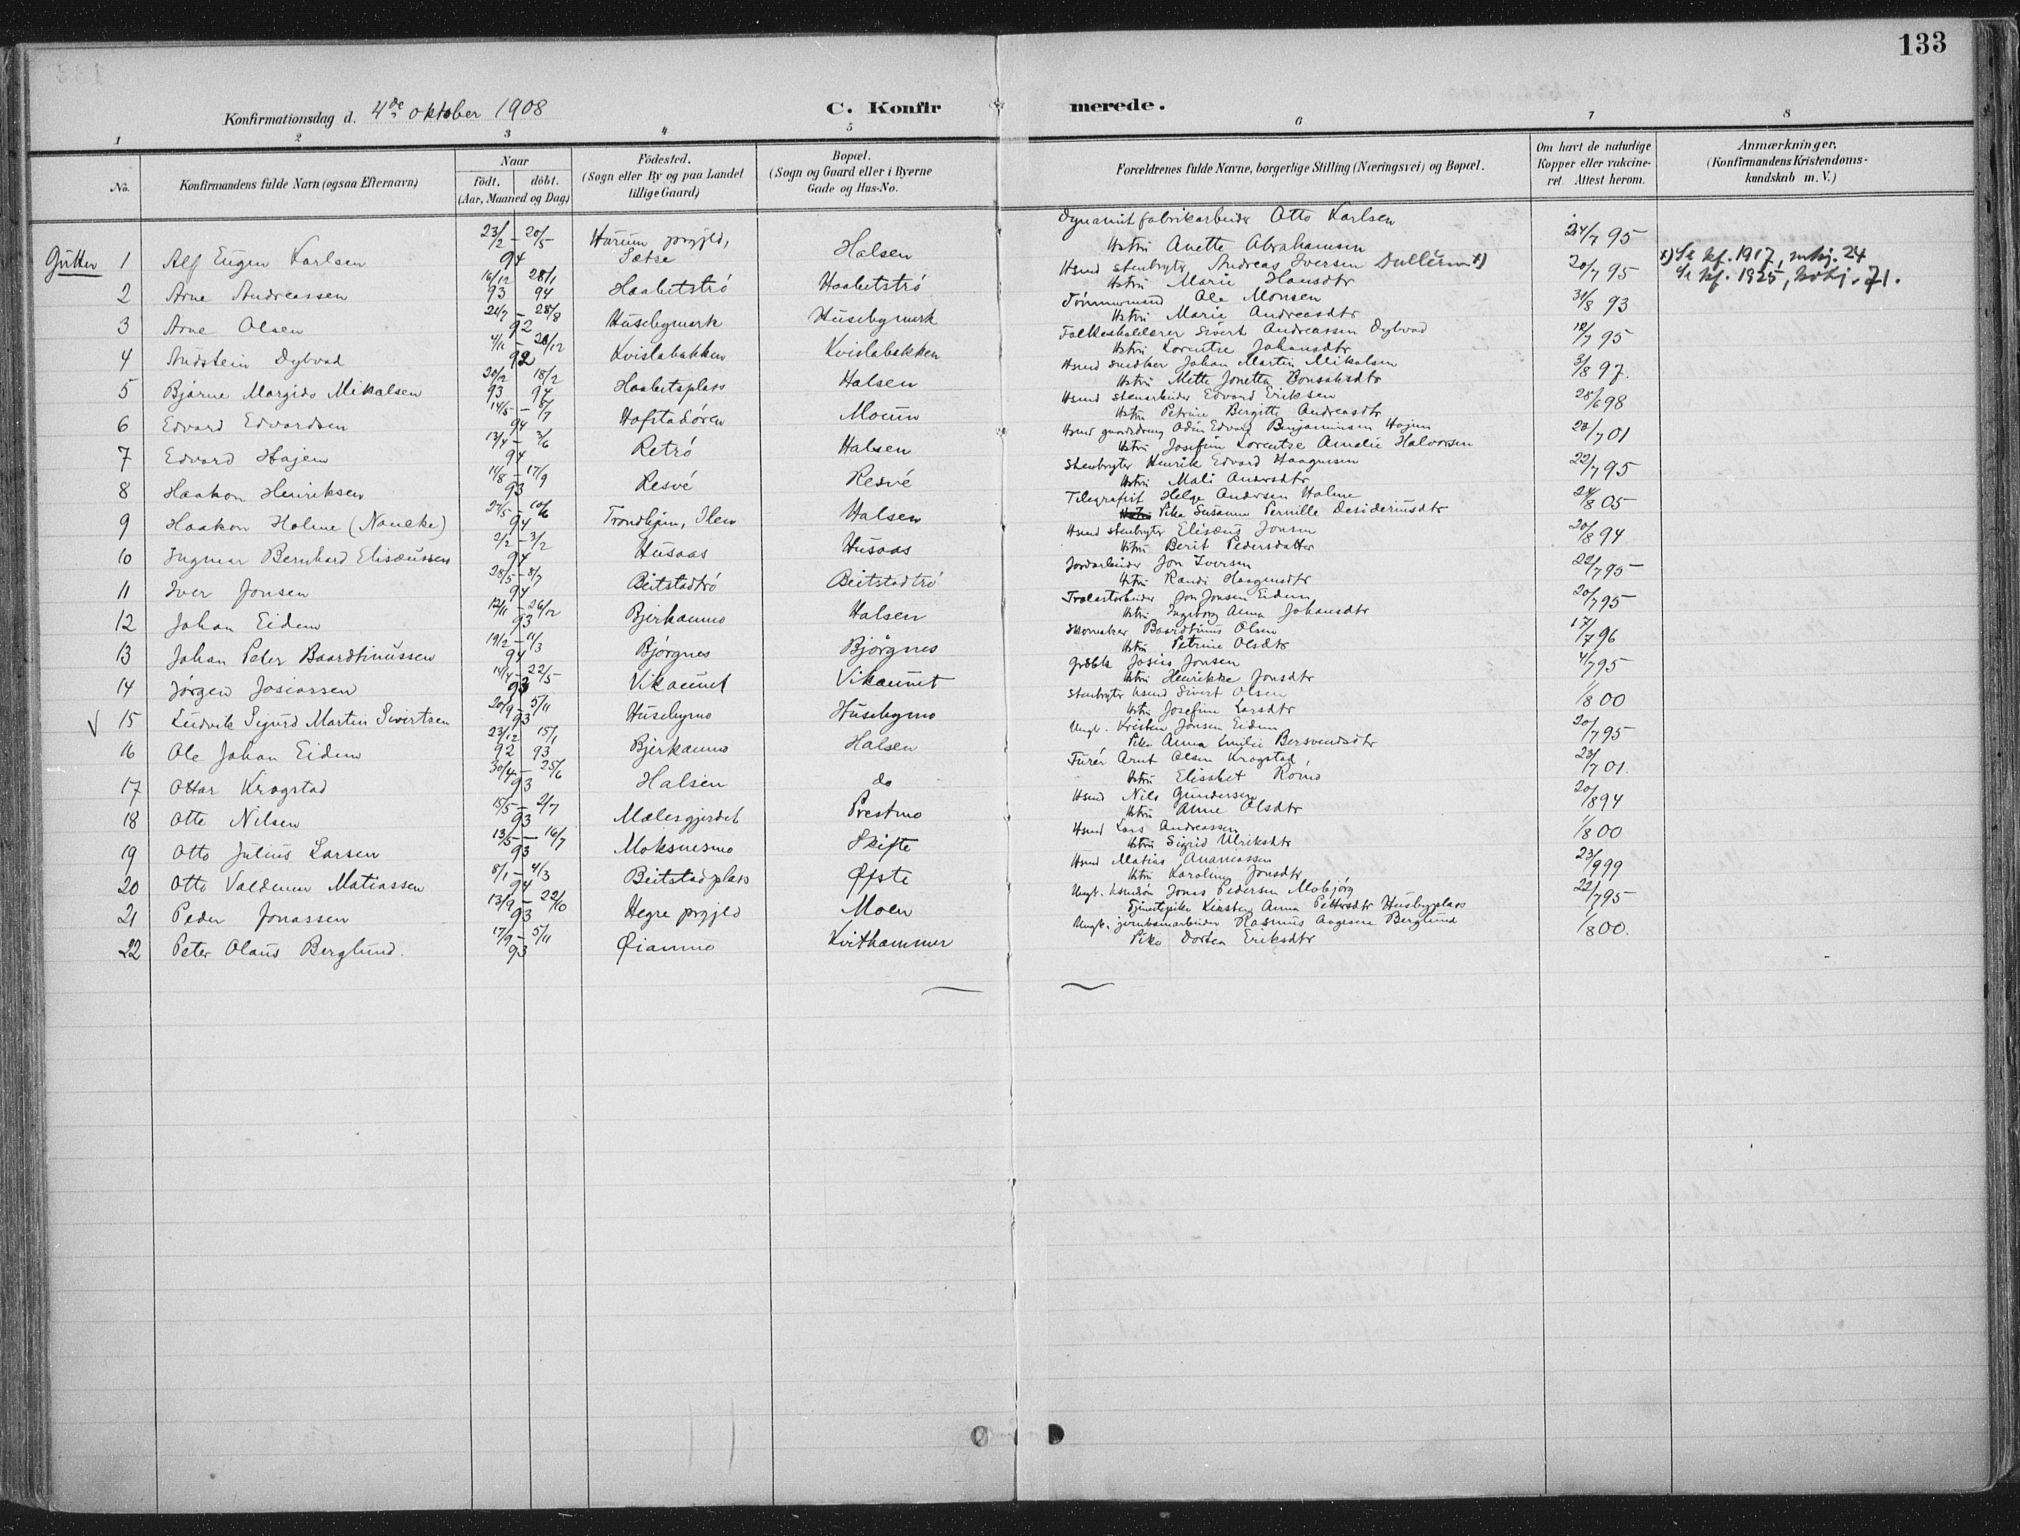 133
Konfirmationsdag d. 4de oktober 1908
C. Konfirmerede.
1 2 3 4 5 6 7 8
No.
Konfirmandens fulde Navn (ogsaa Efternavn)
Naar
født. døbt.
(Aar, Maaned og Dag)
Fødested.
(Sogn eller By og paa Landet
tillige Gaard)
Bopæl.
(Sogn og Gaard eller i Byerne
Gade og Hus-No.
Forældrenes fulde Navne, borgerlige Stilling (Næringsvei) og Bopæl.
Om havt de naturlige
Kopper eller vakcine-
ret. Attest herom.
Anmærkninger.
(Konfirmandens Kristendoms-
kundskab m. V.)
Gutter 1 Alf Eugen Karlsen 23/2 - 20/5 94 Hurum prgjld, Sætre Halsen Dynamitfabrikarbeider Otto Karlsen Hstru Anette Abrahamsen 24/7 95
2 Arne Andreassen 16/12 93 28/1 94 Haabetstrø Haabetstrø Hsmd stenbryter Andreas Iversen Dullerum 1) Hstru Marie Hansdtr 20/7 95 1) Se kf. 1917, mhj. 24
Se kf. 1925,
71.
3 Arne Olsen 24/7 - 28/8 92 Husebymark Husebymark Tømmermand Ole Monsen Hstru Marie Andreasdtr 31/8 93
4 Audstein Dybvad 4/11 - 28/12 92 Kvislabakken Kvislabakken Folkeskolelærer Sivert Andreassen Dybvad Hstru Lorentse Johansdtr 18/7 95
5 Bjarne Margido Mikalsen 20/12 93 18/2 94 Haabetsplass Halsen Hsmd snedker Johan Martin Mikalsen Hstru Mette Jonetta Bonsaksdtr 3/8 97.
6 Edvard Edvardsen 14/5 - 8/7 94 Hofstadøren Mouun Hsmd stenarbeider Edvard Eriksen Hstru Petrine Bergitte Andreasdtr 28/6 98
7 Edvard Hojem 13/4 - 3/6 94 Retrø Halsen Hsmd gaardsdreng Odin Edvard Benjaminsen Hojem Hstru Josefine Lorentse Amalie Halvorsen 20/7 01
8 Haakon Henriksen 11/8 - 17/9 93 Resvé Resvé Stenbryter Henrik Edvard Haagensen Hstru Mali Andersdtr 22/7 95
9 Haakon Holme (Naucke) 27/5 - 10/6 94 Trondhjem, Ilen Halsen Telegrafist Helge Andersen Holme Pike Susanne Pernille Desideriusdtr 24/8 05
10 Ingmar Bernhard Elisæussen 2/2 - 3/2 94 Husaas Husaas Hsmd stenbryter Elisæus Jonsen Hstru Berit Pedersdatter 20/8 94
11 Iver Jonsen 28/5 - 8/7 94 Beitstadtrø Beitstadtrø Jordarbeider Jon Iversen Hstru Randi Haagensdtr 22/7 95
12 Johan Eidem 12/11 - 26/12 93 Bjerkanmo Halsen Trælastarbeider Jon Jonsen Eidem Hstru Ingeborg Anna Johansdtr 20/7 95
13 Johan Peter Baardtinussen 19/2 - 11/3 94 Bjørgnes Bjørgnes Skomaker Baardtinus Olsen Hstru Petrine Olsdtr 17/7 96
14 Jørgen Josiassen 14/4 - 22/5 93 Vikaunet Vikaunet Grdbr. Josias Jonsen Hstru Henrikke Jonsdtr 4/7 95
√ 15 Ludvik Sigurd Martin Sivertsen 20/9 - 5/11 93 Husebymo Husebymo Stenbryter hsmd Sivert Olsen Hstru Josefine Larsdtr 1/8 00
16 Ole Johan Eidem 23/12 92 15/1 93 Bjerkanmo Halsen Ungk. Kristen Jonsen Eidem Pike Anna Emilie Bersvendsdtr 20/7 95
17 Ottar Krogstad 30/4 - 25/6 93 Halsen do Furér Arnt Olsen Krogstad Hstru Elisabet Romo 23/7 01.
18 Otto Nilsen 15/5 - 2/7 93 Mælesgjerdet Prestmo Hsmd Nils Gundersen Hstru Anne Olsdtr 20/8 94
19 Otto Julius Larsen 13/5 - 16/7 93 Moksnesmo Skifte Hsmd Lars Andreassen Hstru Sigrid Ulriksdtr 1/8 00
20 Otto Valdemar Matiassen 8/1 - 4/3 94 Beitstadplass Øfste Hsmd Matias Andreassen Hstru Karoline Jonsdtr 23/9 99
21 Peder Jonassen 13/9 - 22/10 93 Hegre prgjld Moen Ungk. husmdsøn Jonas Pedersen Mobjørg Tjenestepike Kirsten Anna Pettersdtr Husbyplass 22/7 95
22 Peter Olaus Berglund. 17/9 - 5/11 93 Øianmo Kvithammer Ungk. jernbanearbeider Rasmus Aagesen Berglund Pike Dortea Eriksdtr 1/8 00.